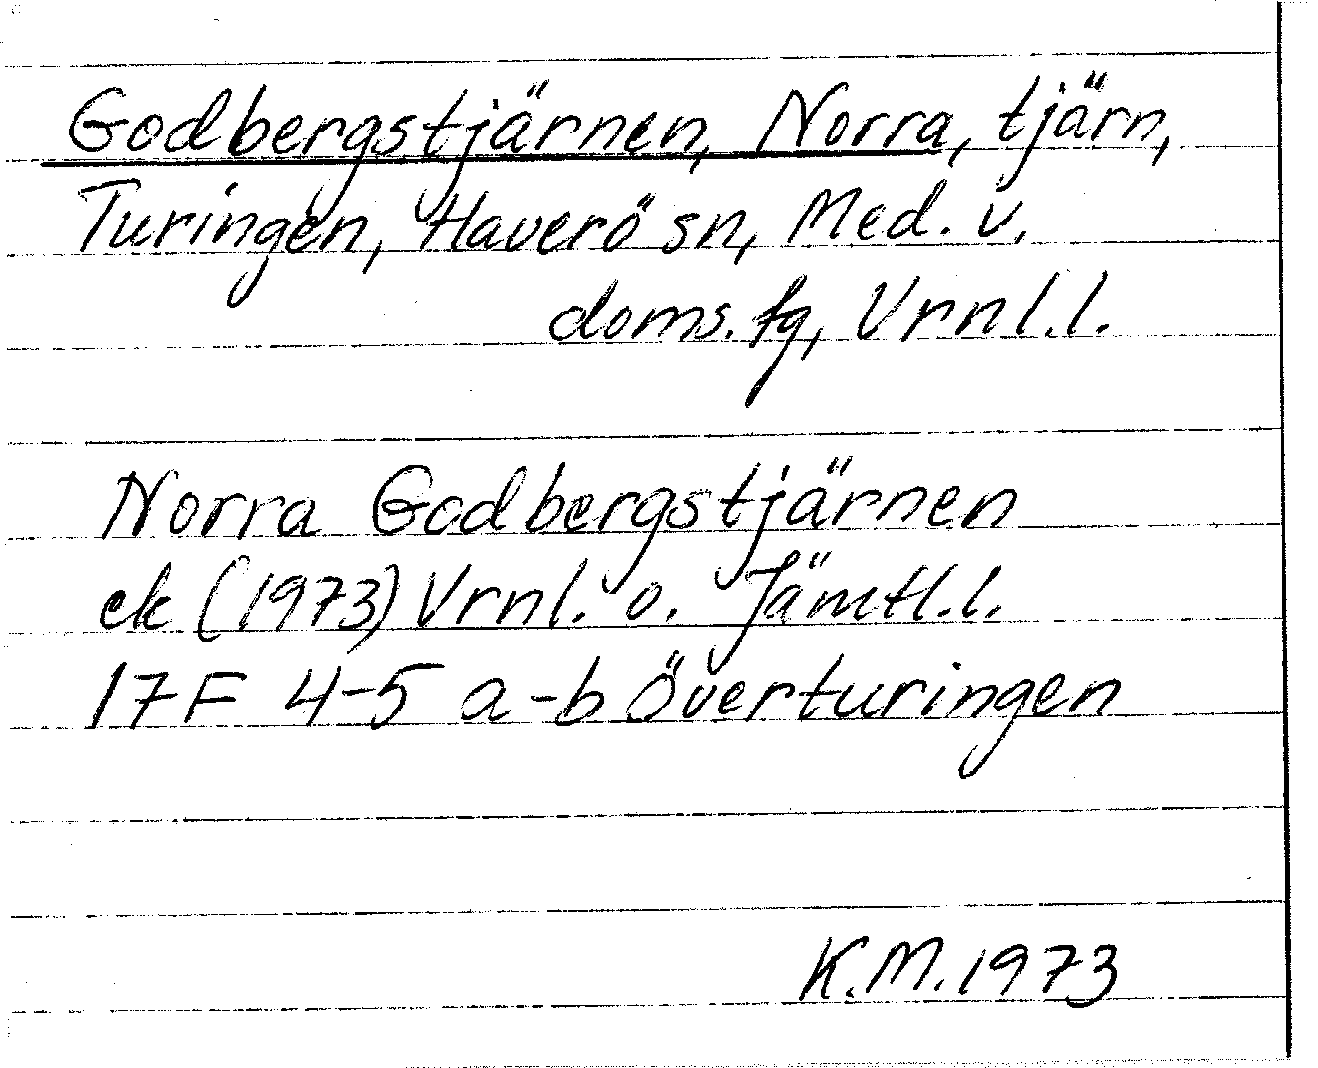 Godbergstjärnen, Norra, tjärn,
Turingen, Haverö sn, Med. v.
doms.fg, Vrnl.l.
Norra Godbergstjärnen
ek (1973) Vrnl. o. Jämtl.l.
17F 4-5 a-b Överturingen
K.M.1973